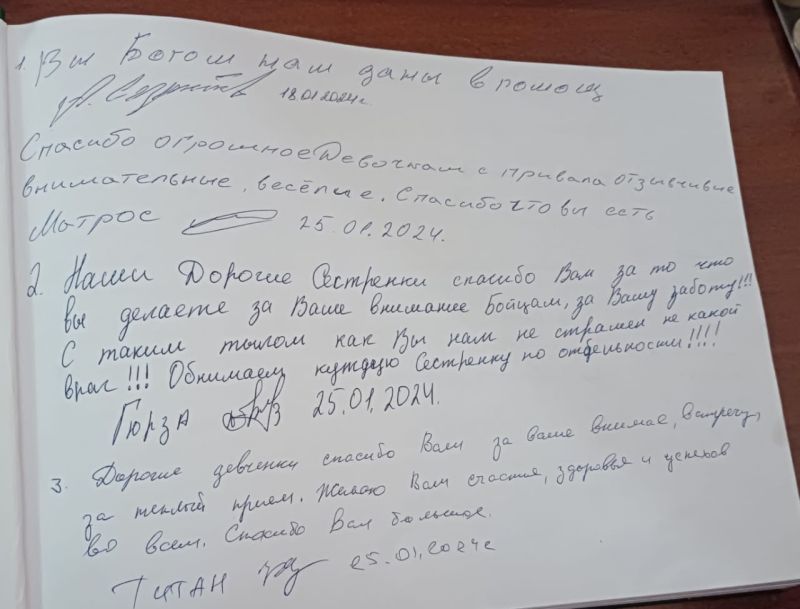 1. Вы Богом нам даны в помощ
18.01.2024г.
Спасибо огромное Девочкам с привала отзывчивые
внимательные, весёлые. Спасибо что вы есть
Матрос 25.01.2024.
2. Наши Дорогие Сестренки спасибо Вам за то что
вы делаете за Ваше внимание Бойцам, за Вашу заботу!!!
С таким тылом как Вы нам не страшен не какой
враг!!! Обнимаем каждую Сестренку по отдельности!!!!
Гюрза 25.01.2024.
3. Дорогие девченки спасибо Вам за ваше внимае, встречу,
за теплый прием. Желаю Вам счастие, здоровья и успехов
во всем. Спасибо Вам большое.
Титан 25.01.2024г